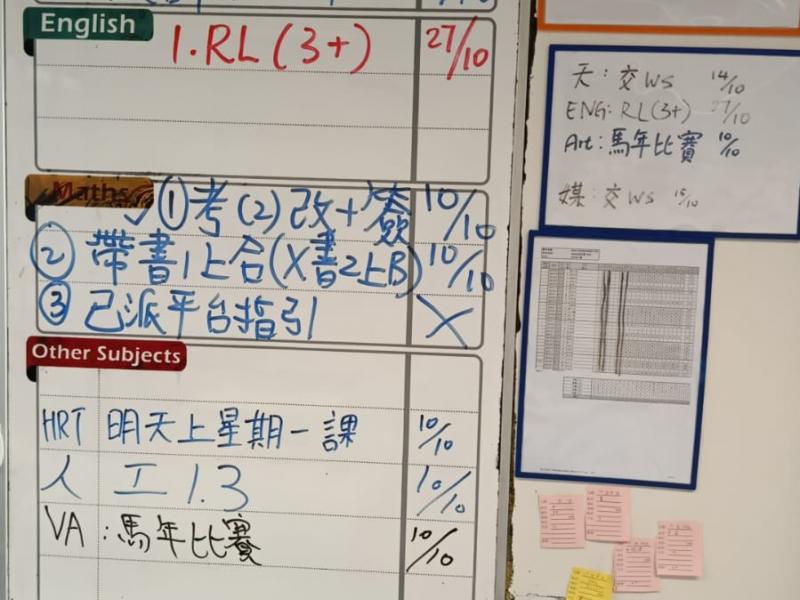 English
1. RL (3+) 27/10
Maths
✓ ① 考(2)改+簽 10/10
② 帶書1上台(X書2上B) 10/10
③ 已派平台指引 X
Other Subjects
HRT 明天上星期一課 10/10
人 工1.3 10/10
VA : 馬年比賽 10/10
天: 交WS 14/10
ENG: RL(3+) 27/10
Art: 馬年比賽 10/10
媒: 交WS 15/10